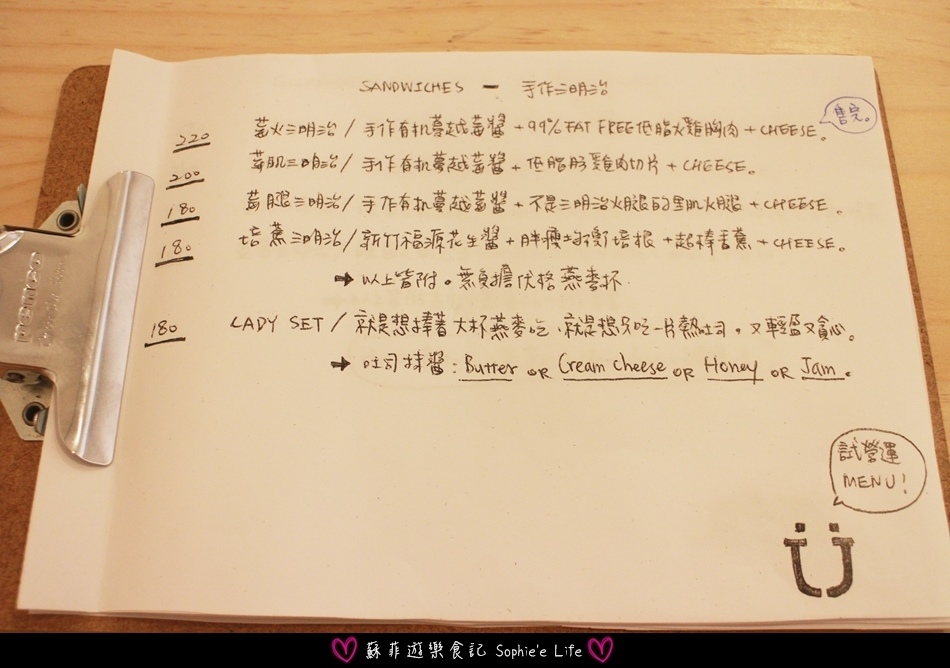 SANDWICHES － 手作三明治
售完。
220 莓火三明治 / 手作有机蔓越莓醬 + 99% FAT FREE 低脂火雞胸肉 + CHEESE。
200 莓肌三明治 / 手作有机蔓越莓醬 + 低脂肪雞肉切片 + CHEESE。
180 莓腿三明治 / 手作有机蔓越莓醬 + 不是三明治火腿的里肌火腿 + CHEESE。
180 培蕉三明治 / 新竹福源花生醬 + 胖瘦均衡培根 + 超棒香蕉 + CHEESE。
→ 以上皆附。無負擔优格燕麥杯.
180 LADY SET / 就是想捧著大杯燕麥吃、就是想只吃一片熱吐司，又輕盈又貪心。
→ 吐司抹醬：Butter OR Cream cheese OR Honey OR Jam。
試營運
MENU!
nanoco
蘇菲遊樂食記 Sophie'e Life